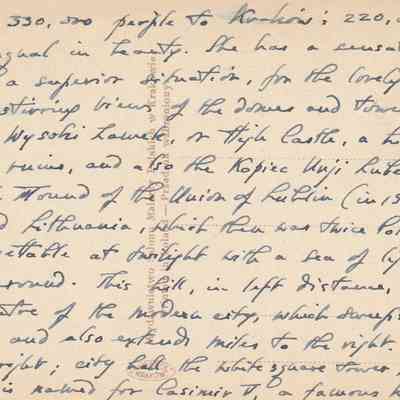 330,500 people to Kraków's 220,
equal in beauty. She has a
a superior situation, for the lovely
stirring views of the domes and towe
Wysoki Zamek, or High Castle, a h
ruins, and also the Kopiec Unji Lube
Mound of the Union of Lublin (in 15
d Lithuania, which then was twice Pol
at twilight with a sea of li
around. This hill, in left distance,
tre of the modern city, which sweeps
and also extends miles to the right.
right; city hall the white square tower
is named for Casimir V, a famous k